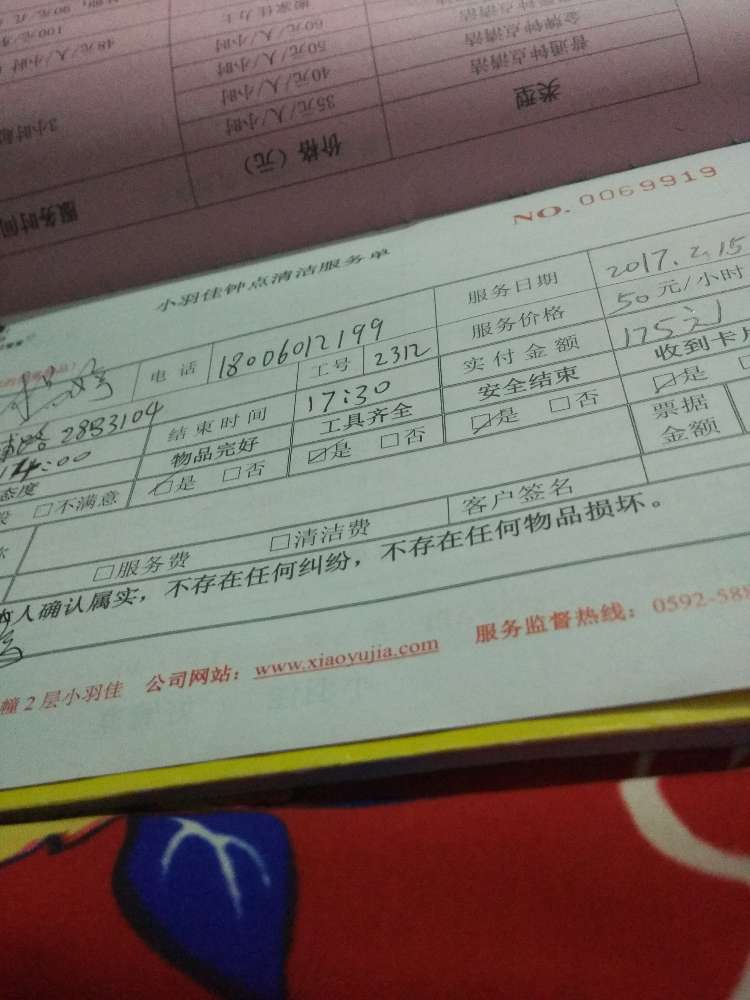 类型
价格（元）
服务时间
普通钟点清洁
35元/人/小时
3小时
金牌钟点清洁
40元/人/小时
50元/人/小时
48元/人/小时
60元/人/小时
NO. 0069919
小羽佳钟点清洁服务单
电话 18006012199 服务日期 2017.2.15
工号 2312 服务价格 50元/小时
2853104 结束时间 17:30 实付金额 175元
14:00 物品完好 工具齐全 安全结束 收到卡
态度 □不满意 ☑是 □否 ☑是 □否 ☑是 □否 ☑是
票据金额
□服务费 □清洁费 客户签名
人确认属实，不存在任何纠纷，不存在任何物品损坏。
幢2层小羽佳 公司网站：www.xiaoyujia.com 服务监督热线：0592-588